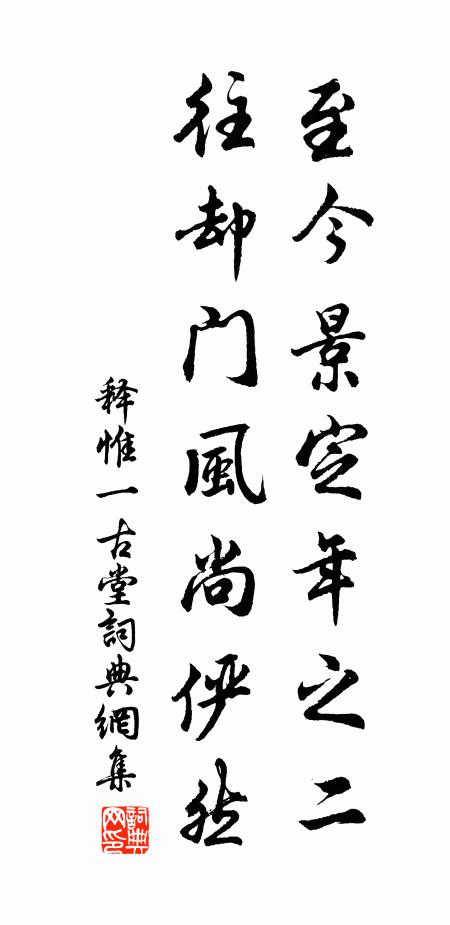 至今景定年之二
往却門風尚俨然
释惟一古堂詞典網集
詞典
网印